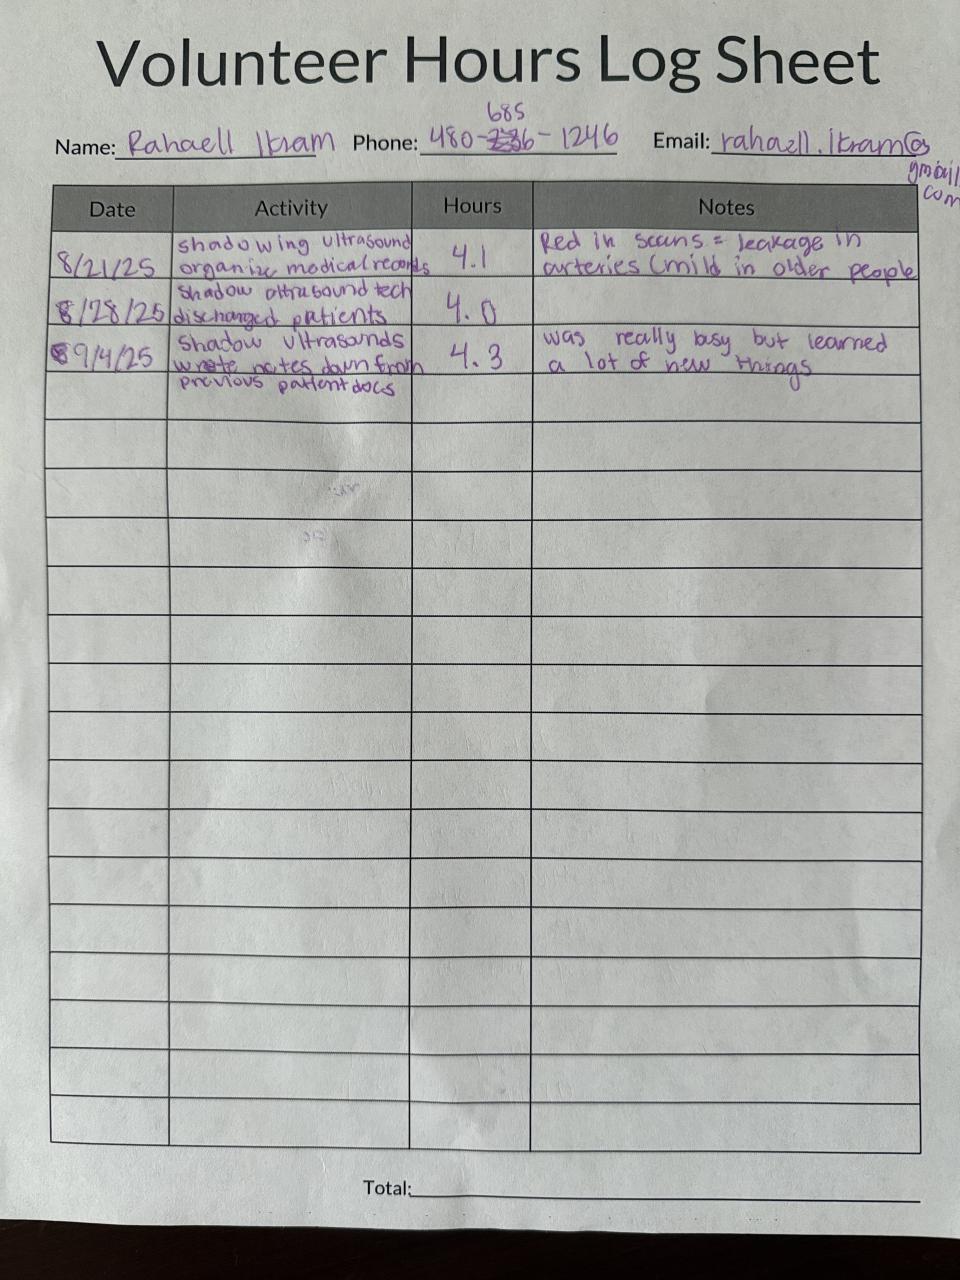 Volunteer Hours Log Sheet
685
Name: Rahaell Ikram Phone: 480- - 1246 Email: rahaell.ikram@
gmail.
com
Date Activity Hours Notes
shadowing ultrasound Red in scans = leakage in
8/21/25 organize medical records 4.1 arteries (mild in older people
shadow ultrasound tech
8/28/25 discharged patients 4.0
shadow ultrasounds was really busy but learned
9/4/25 wrote notes down from 4.3 a lot of new things
previous patient docs
Total: